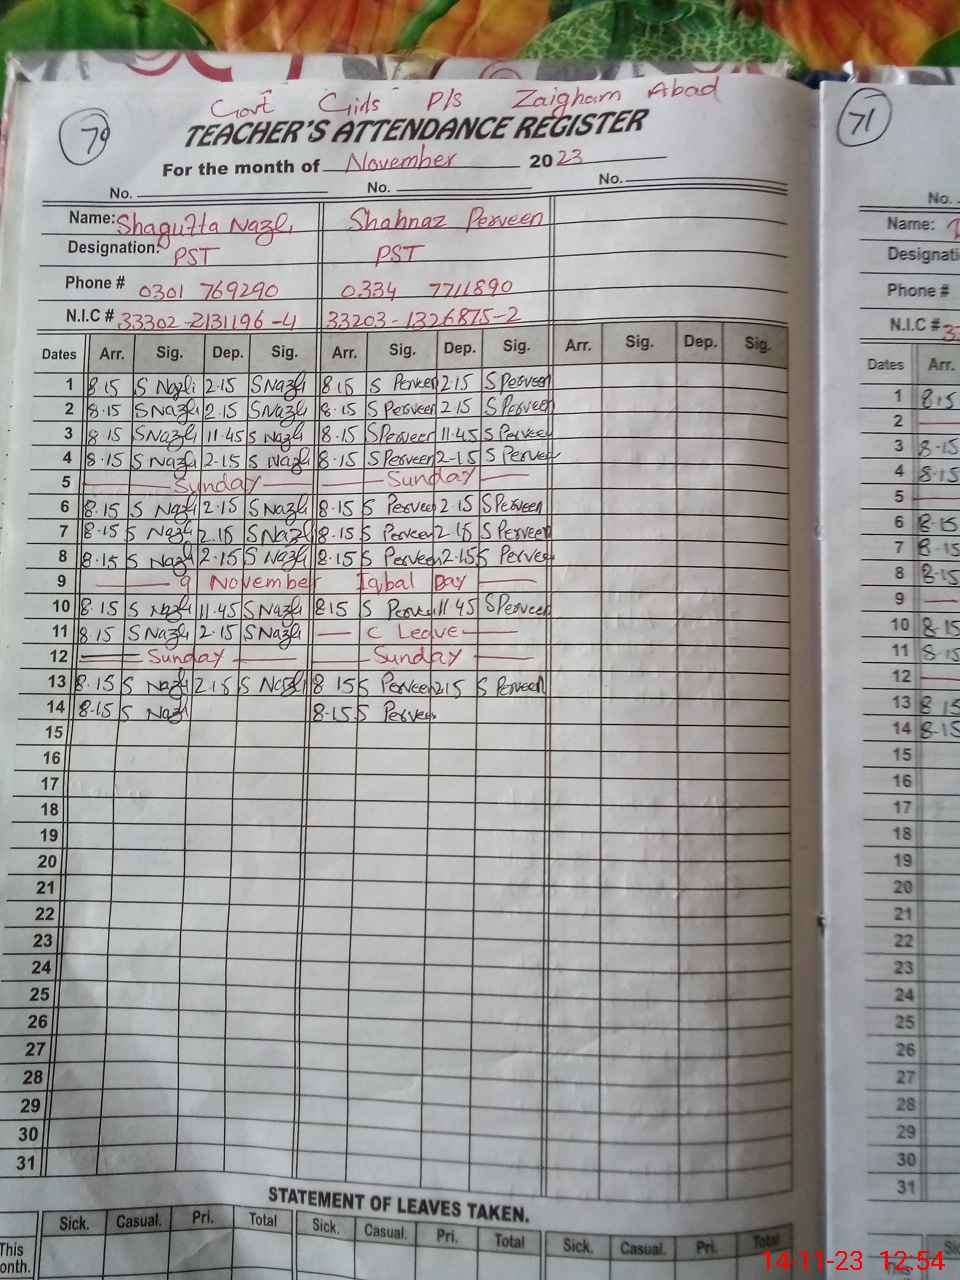 Govt Girls P/S Zaigham Abad
70
TEACHER'S ATTENDANCE REGISTER
For the month of November 2023
No. No. No.
Name: Shagufta Nazli Shahnaz Perveen
Designation: PST PST
Phone # 0301 769290 0334 7711890
N.I.C # 33302-2131196-4 33203-1326875-2
Dates Arr. Sig. Dep. Sig. Arr. Sig. Dep. Sig. Arr. Sig. Dep. Sig.
1 8.15 S Nazli 2.15 S Nazli 8.15 S Perveen 2.15 S Perveen
2 8.15 S Nazli 2.15 S Nazli 8.15 S Perveen 2.15 S Perveen
3 8.15 S Nazli 11.45 S Nazli 8.15 S Perveen 11.45 S Perveen
4 8.15 S Nazli 2.15 S Nazli 8.15 S Perveen 2.15 S Perveen
5 Sunday Sunday
6 8.15 S Nazli 2.15 S Nazli 8.15 S Perveen 2.15 S Perveen
7 8.15 S Nazli 2.15 S Nazli 8.15 S Perveen 2.15 S Perveen
8 8.15 S Nazli 2.15 S Nazli 8.15 S Perveen 2.15 S Perveen
9 9 November Iqbal Day
10 8.15 S Nazli 11.45 S Nazli 8.15 S Perveen 11.45 S Perveen
11 8.15 S Nazli 2.15 S Nazli C Leave
12 Sunday Sunday
13 8.15 S Nazli 2.15 S Nazli 8.15 S Perveen 2.15 S Perveen
14 8.15 S Nazli 8.15 S Perveen
15
16
17
18
19
20
21
22
23
24
25
26
27
28
29
30
31
STATEMENT OF LEAVES TAKEN.
Sick. Casual. Pri. Total Sick. Casual. Pri. Total Sick. Casual. Pri. Total
This
onth.
71
No.
Name:
Designati
Phone #
N.I.C #
Dates Arr.
1 8.15
2
3 8.15
4 8.15
5
6 8.15
7 8.15
8 8.15
9
10 8.15
11 8.15
12
13 8.15
14 8.15
15
16
17
18
19
20
21
22
23
24
25
26
27
28
29
30
31
This
14-11-23 12:54